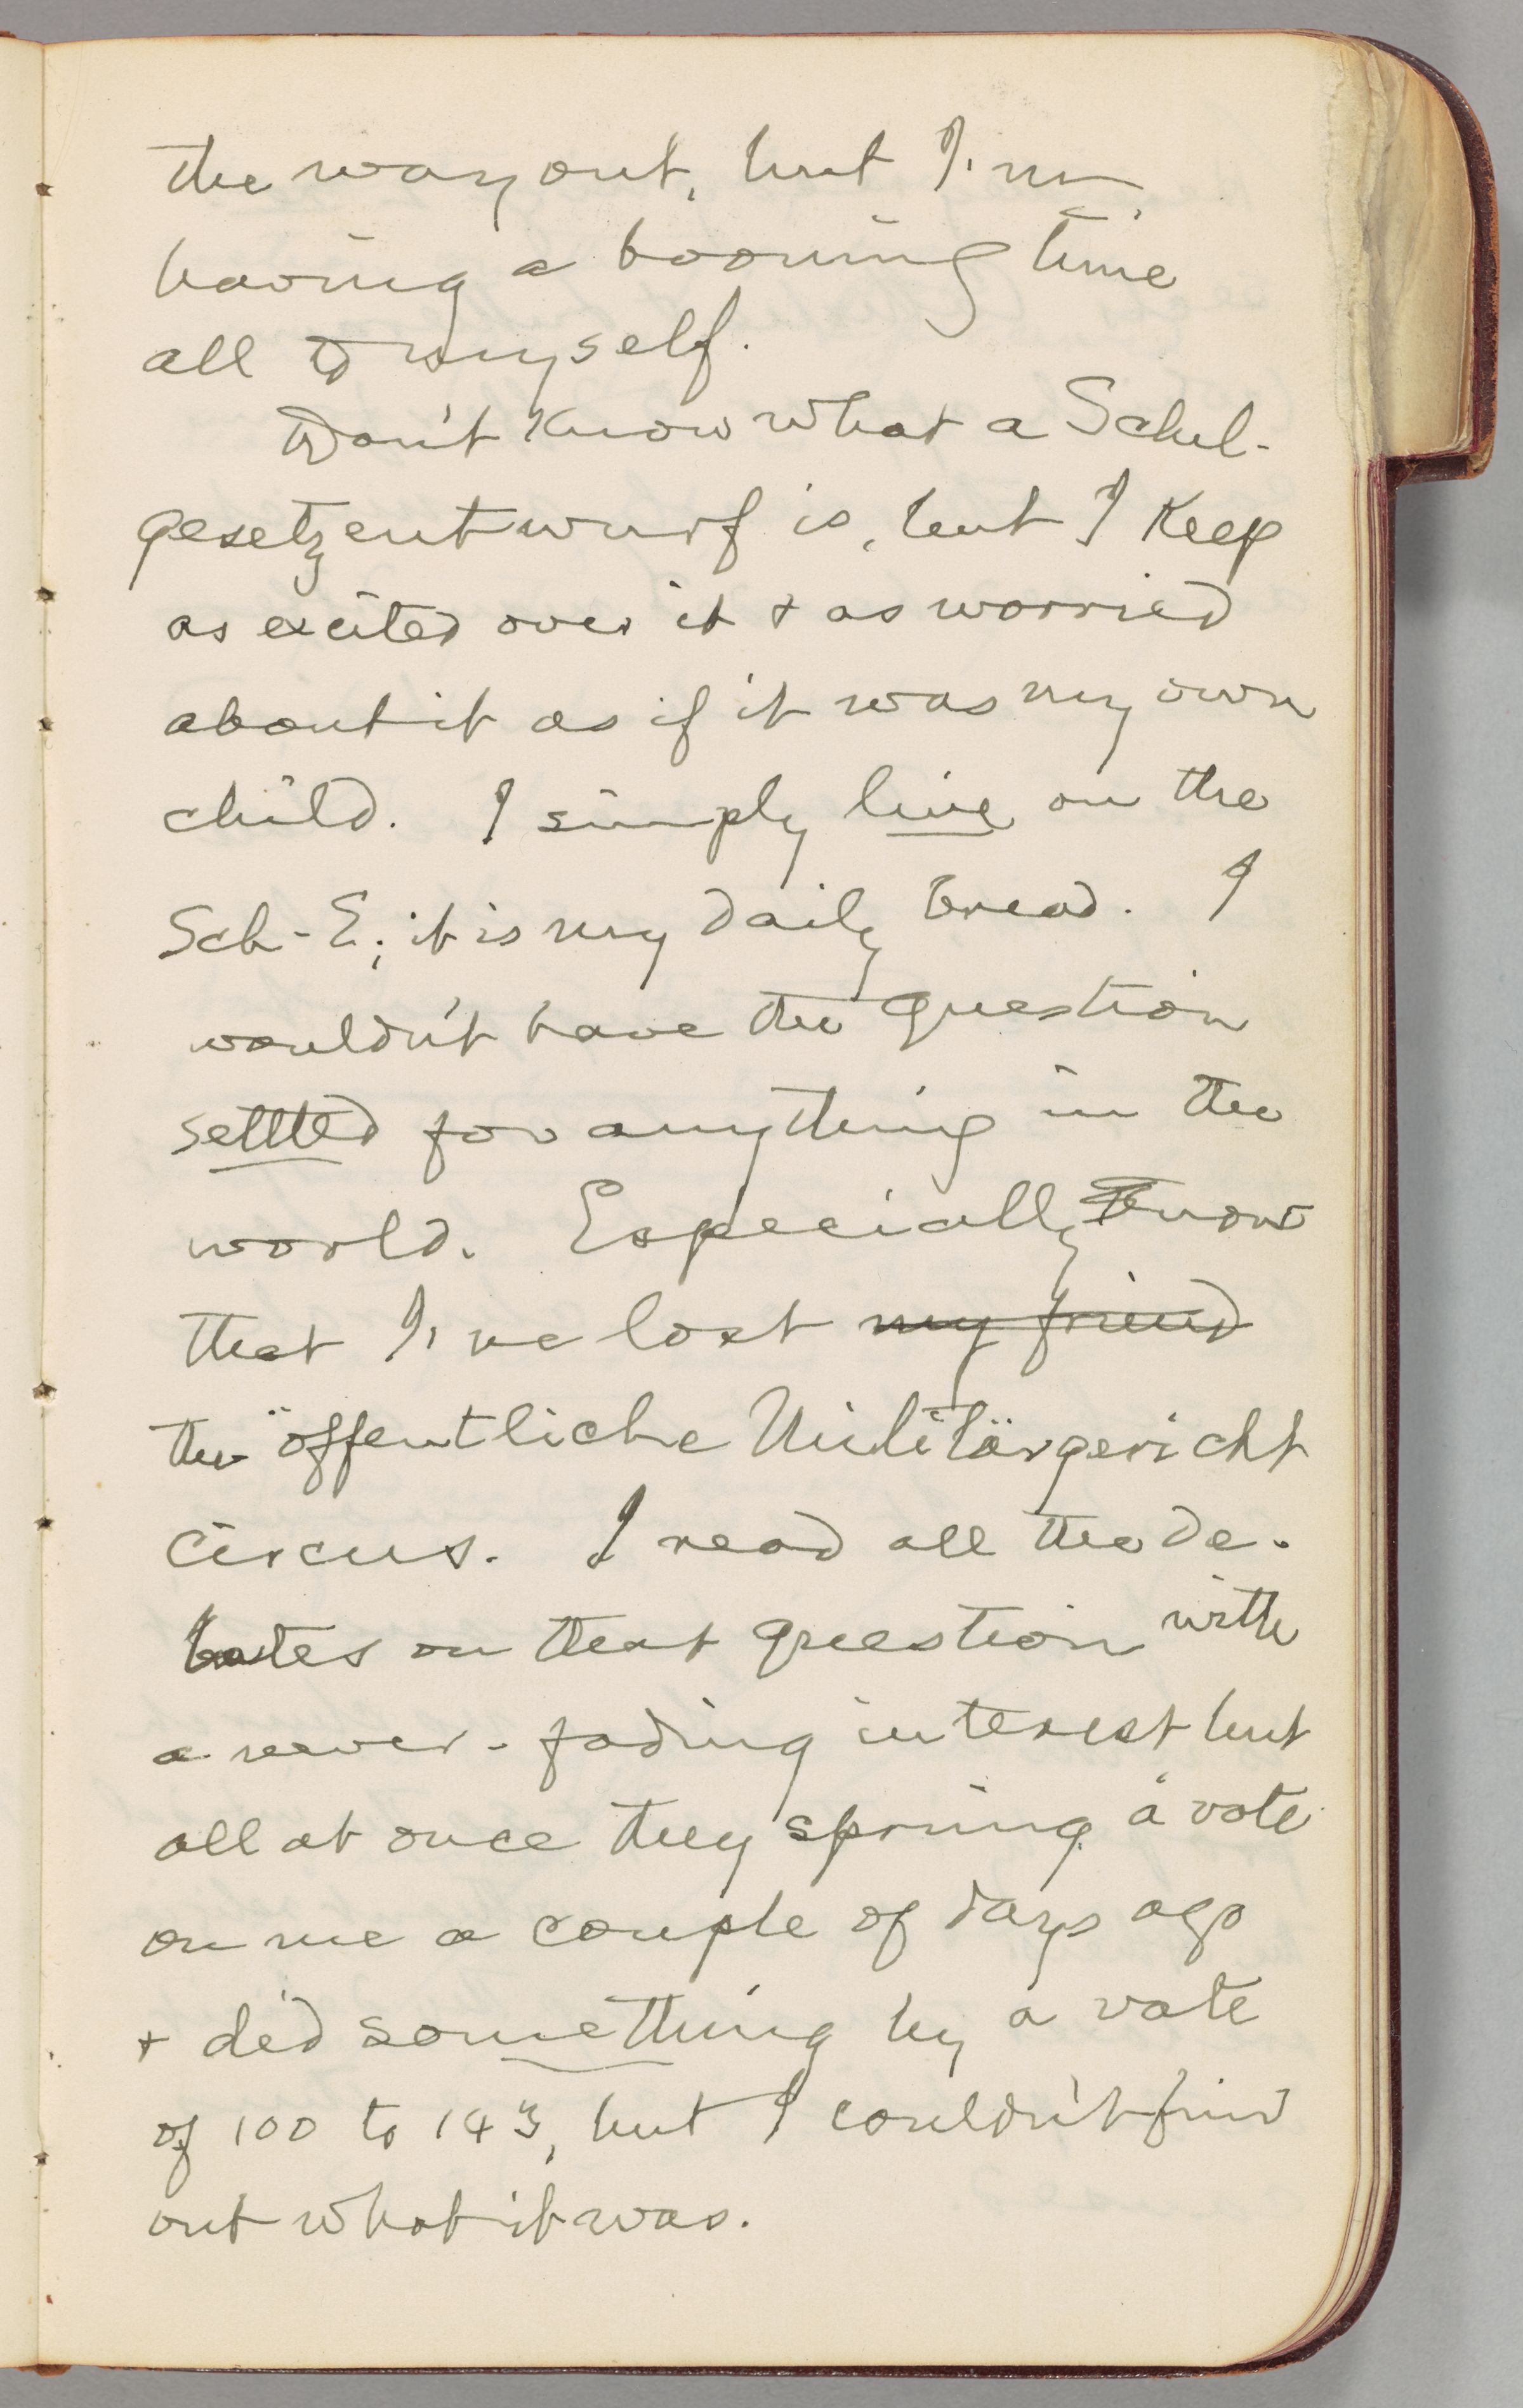 the way out, but I'm
having a booming time
all to myself.
Don't know what a Schul-
gesetzentwurf is, but I keep
as excited over it & as worried
about it as if it was my own
child. I simply live on the
Sch-E; it is my daily bread. I
wouldn't have the question
settled for anything in the
world. Especially now
that I've lost my friend
the öffentliche Militärgericht
circus. I read all the de-
bates on that question with
a never-fading interest but
all at once they sprung a vote
on me a couple of days ago
& did something by a vote
of 100 to 143, but I couldn't find
out what it was.